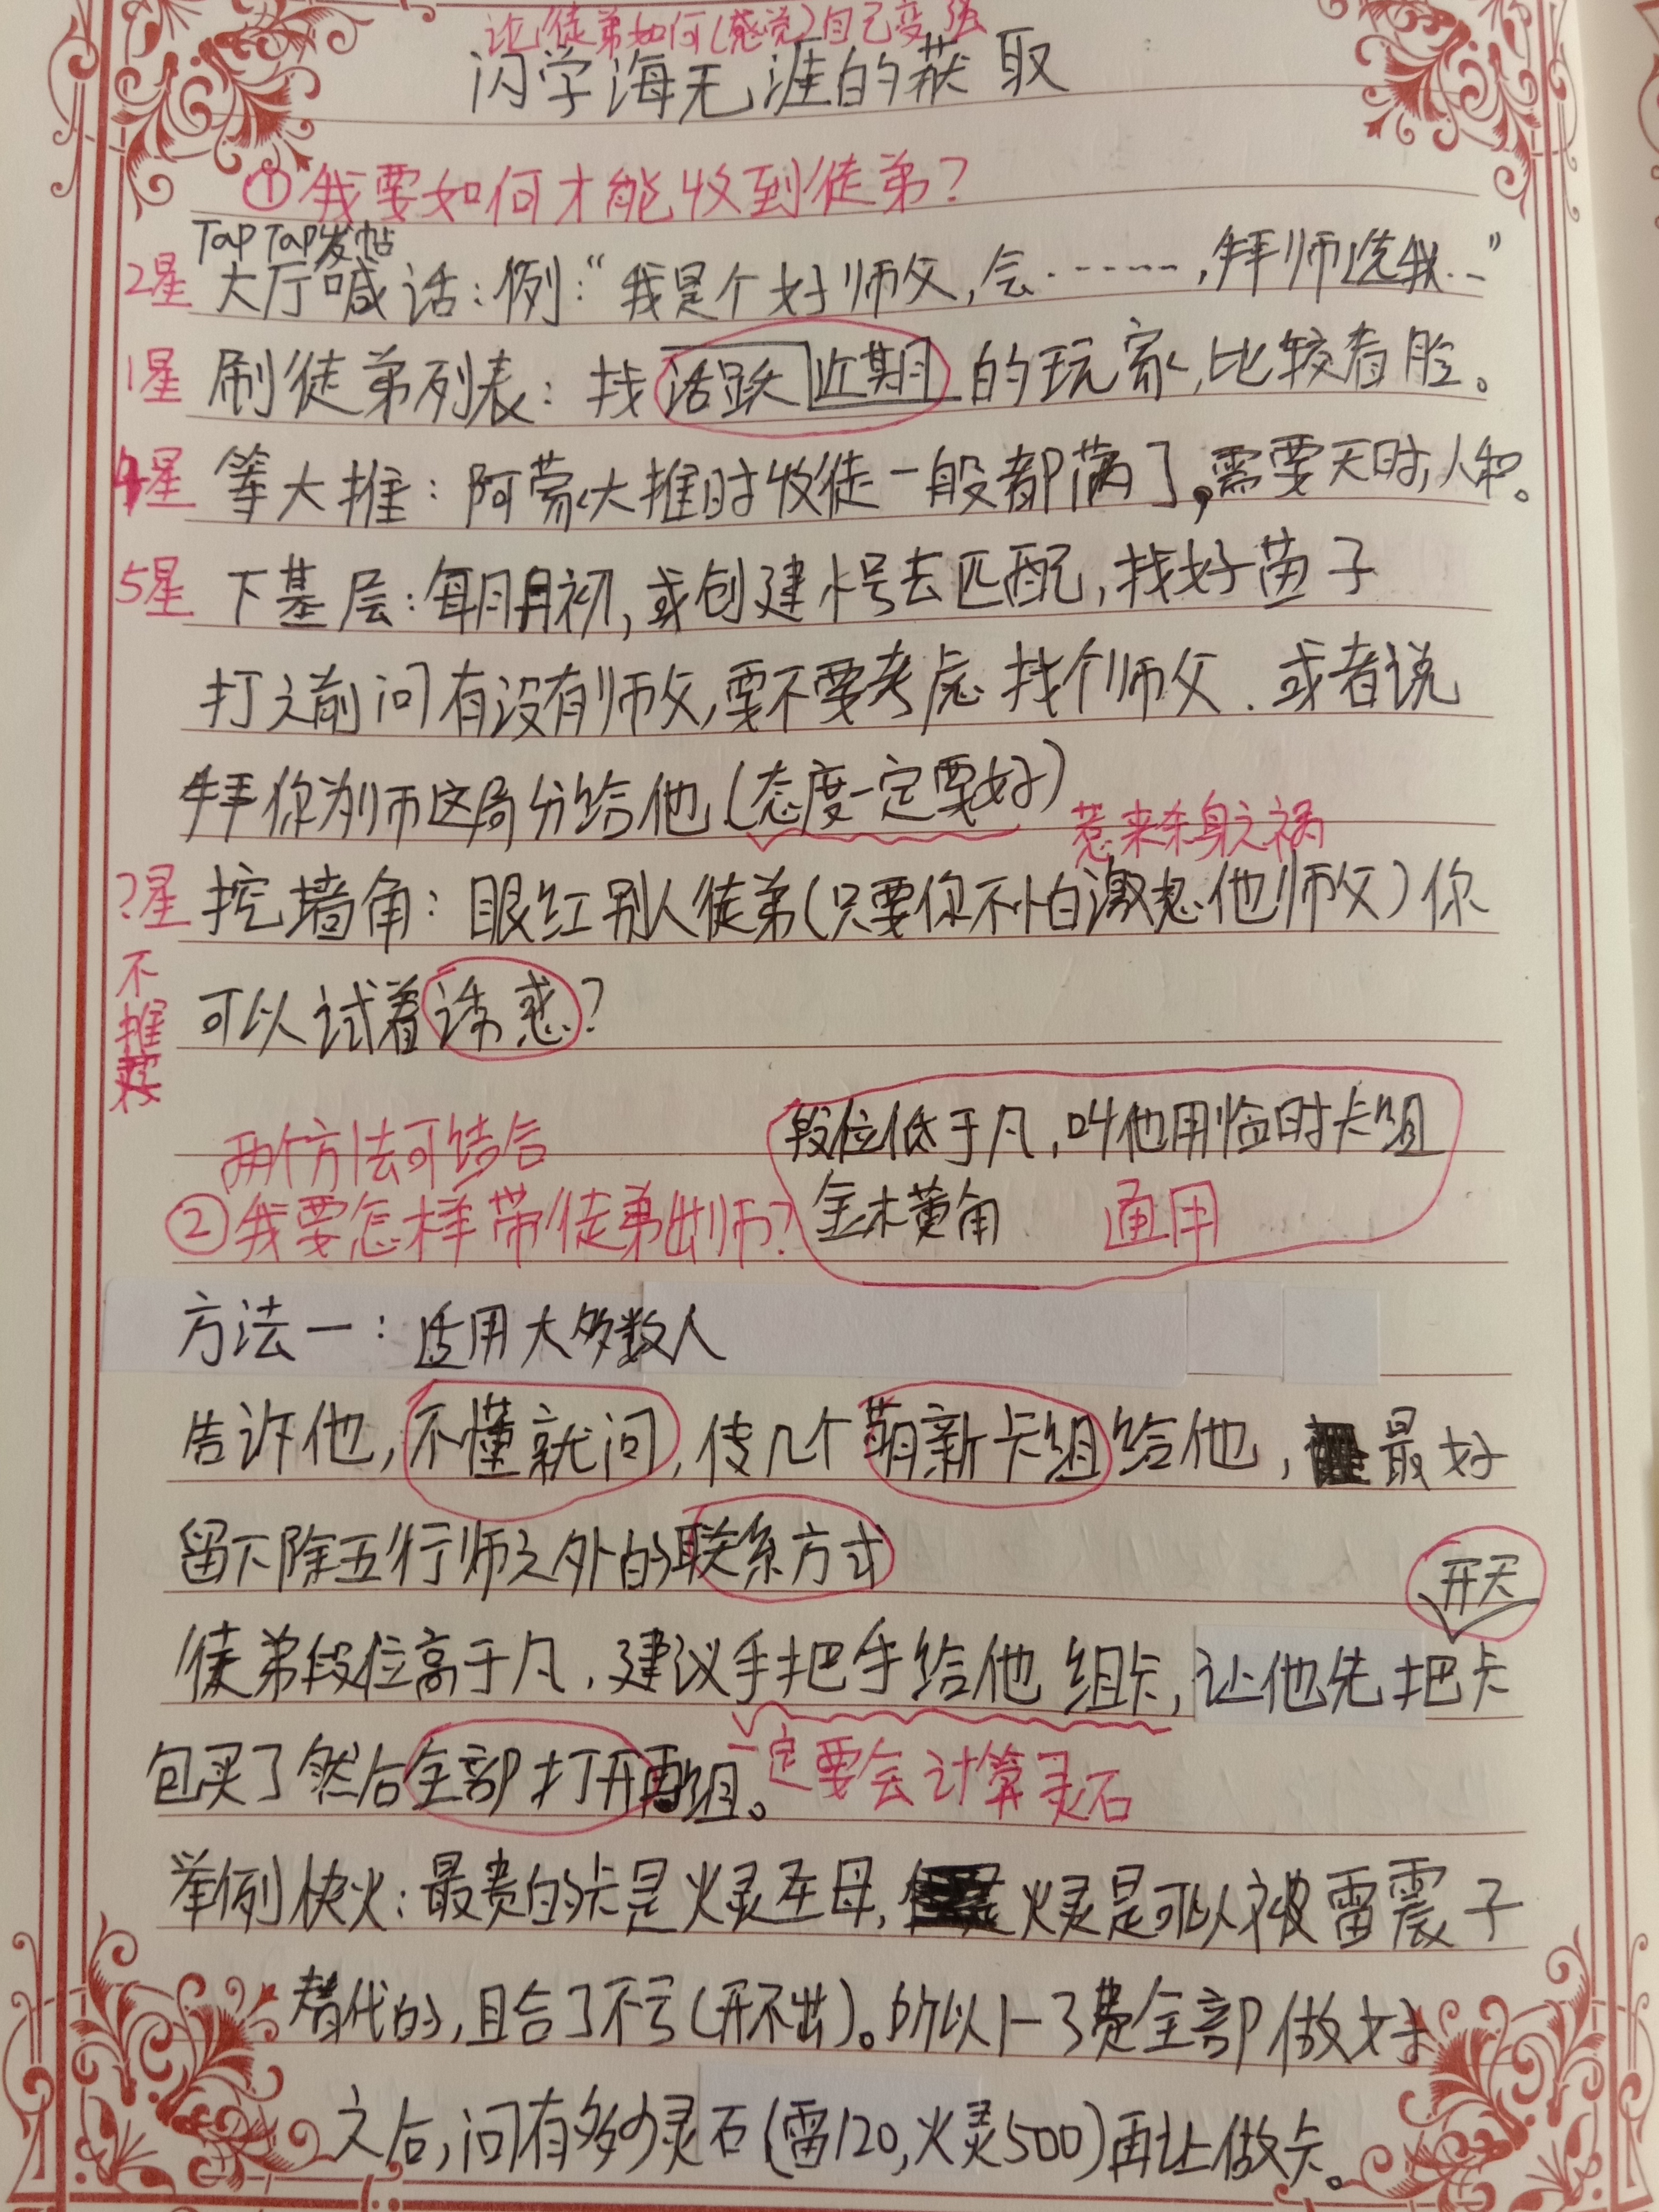 论徒弟如何(感觉)自己变强
闪学海无涯的获取
①我要如何才能收到徒弟?
TapTap发帖
2星 大厅喊话:例:“我是个好师父,会……,拜师选我…”
1星 刷徒弟列表:找活跃近期的玩家,比较看脸。
4星 等大推:阿蒙大推时收徒一般都满了,需要天时人和。
5星 下基层:每月月初,或创建小号去匹配,找好苗子
打之前问有没有师父,要不要考虑找个师父.或者说
拜你为师这局分给他(态度一定要好)
惹来杀身之祸
?星 挖墙角:眼红别人徒弟(只要你不怕激怒他师父)你
不推荐 可以试着诱惑?
段位低于凡,叫他用临时卡组
两个方法可结合
②我要怎样带徒弟出师? 金木黄角 通用
方法一:适用大多数人
告诉他,不懂就问,传几个萌新卡组给他,最好
留下除五行师之外的联系方式
开天
徒弟段位高于凡,建议手把手给他组卡,让他先把卡
包买了然后全部打开再组。一定要会计算灵石
举例快火:最贵的卡是火灵圣母,火灵是可以被雷震子
替代的,且合了不亏(开不出)。所以1-3费全部做好
之后,问有多少灵石(雷120,火灵500)再让做卡。